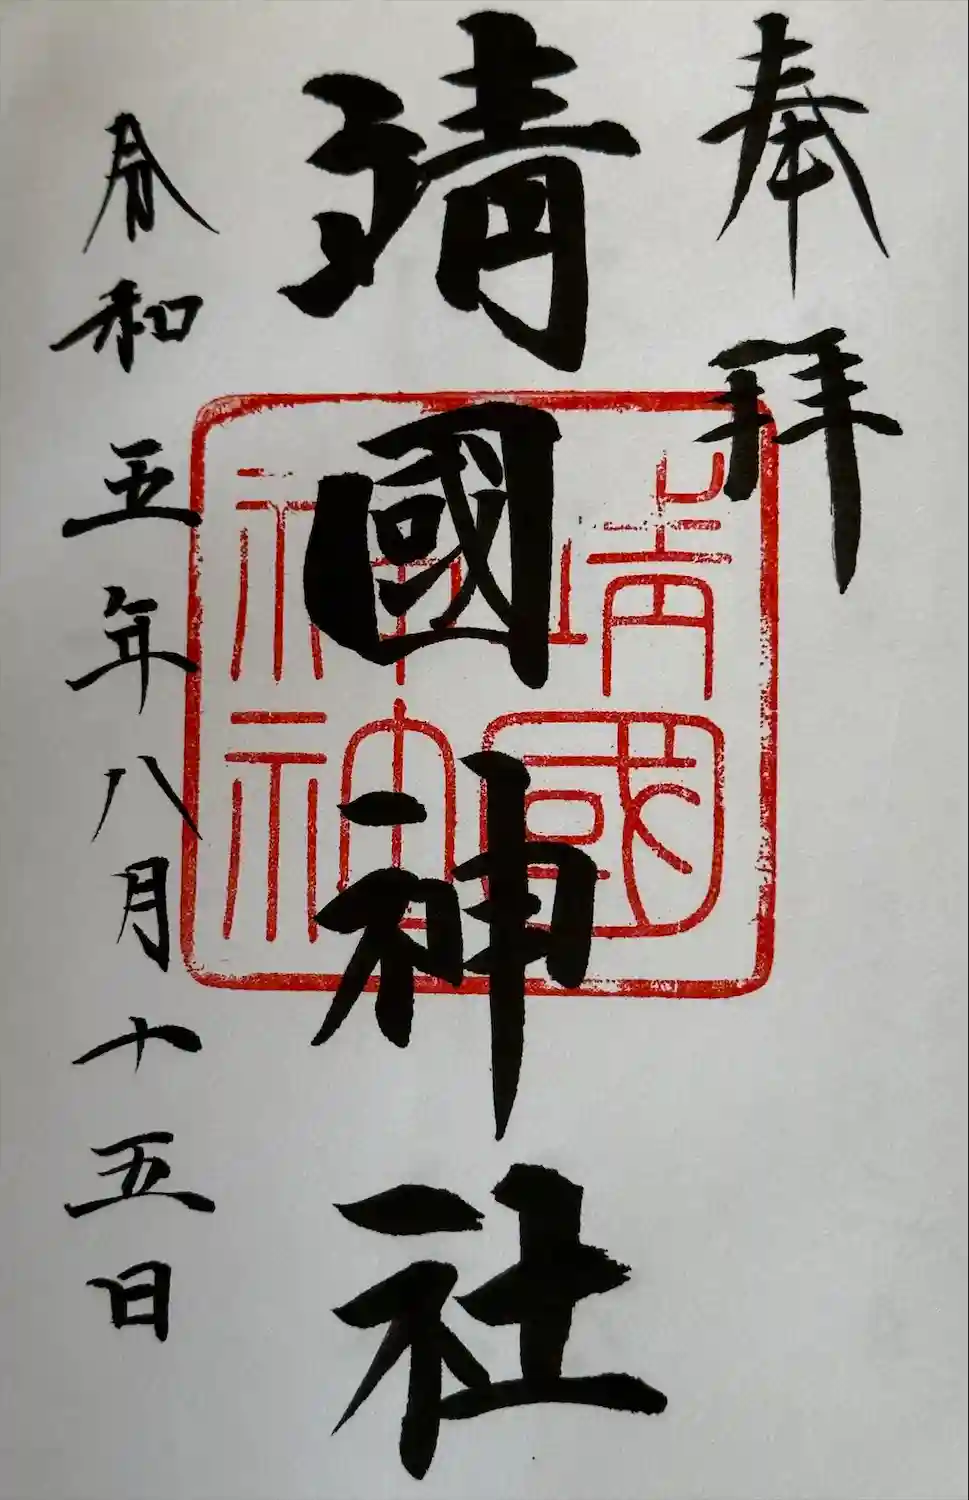 奉拝
靖國神社
靖國神社
令和五年八月十五日